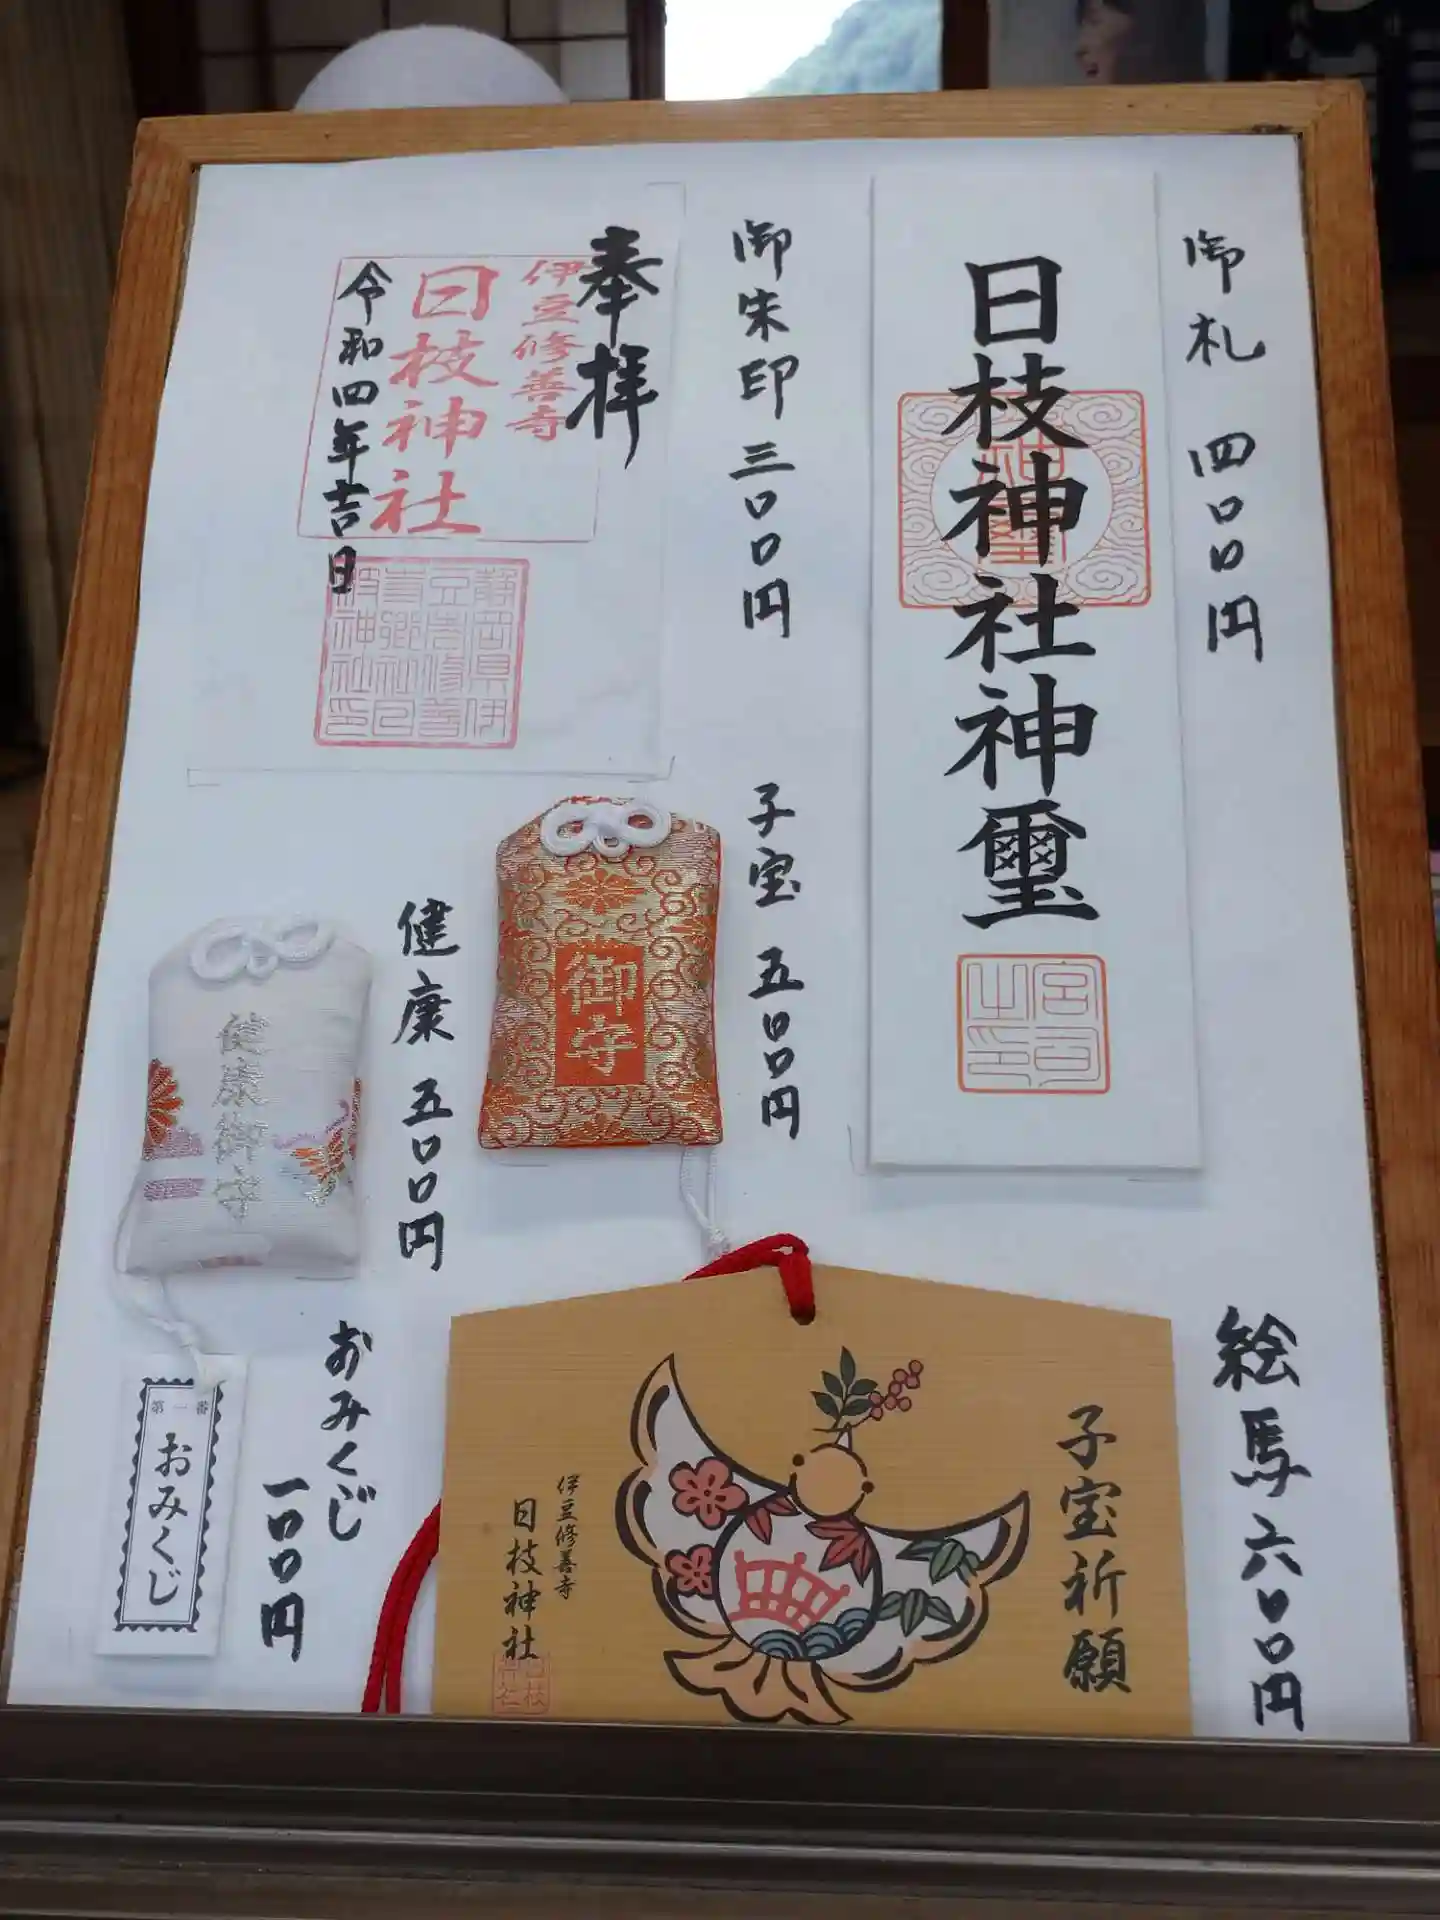 御札 四〇〇円
日枝神社神璽
神璽
宮司之印
御朱印 三〇〇円
奉拝
伊豆修善寺
日枝神社
令和四年吉日
子宝 五〇〇円
御守
健康 五〇〇円
健康御守
絵馬 六〇〇円
子宝祈願
伊豆修善寺
日枝神社
日枝神社
おみくじ
一〇〇円
第一番
おみくじ